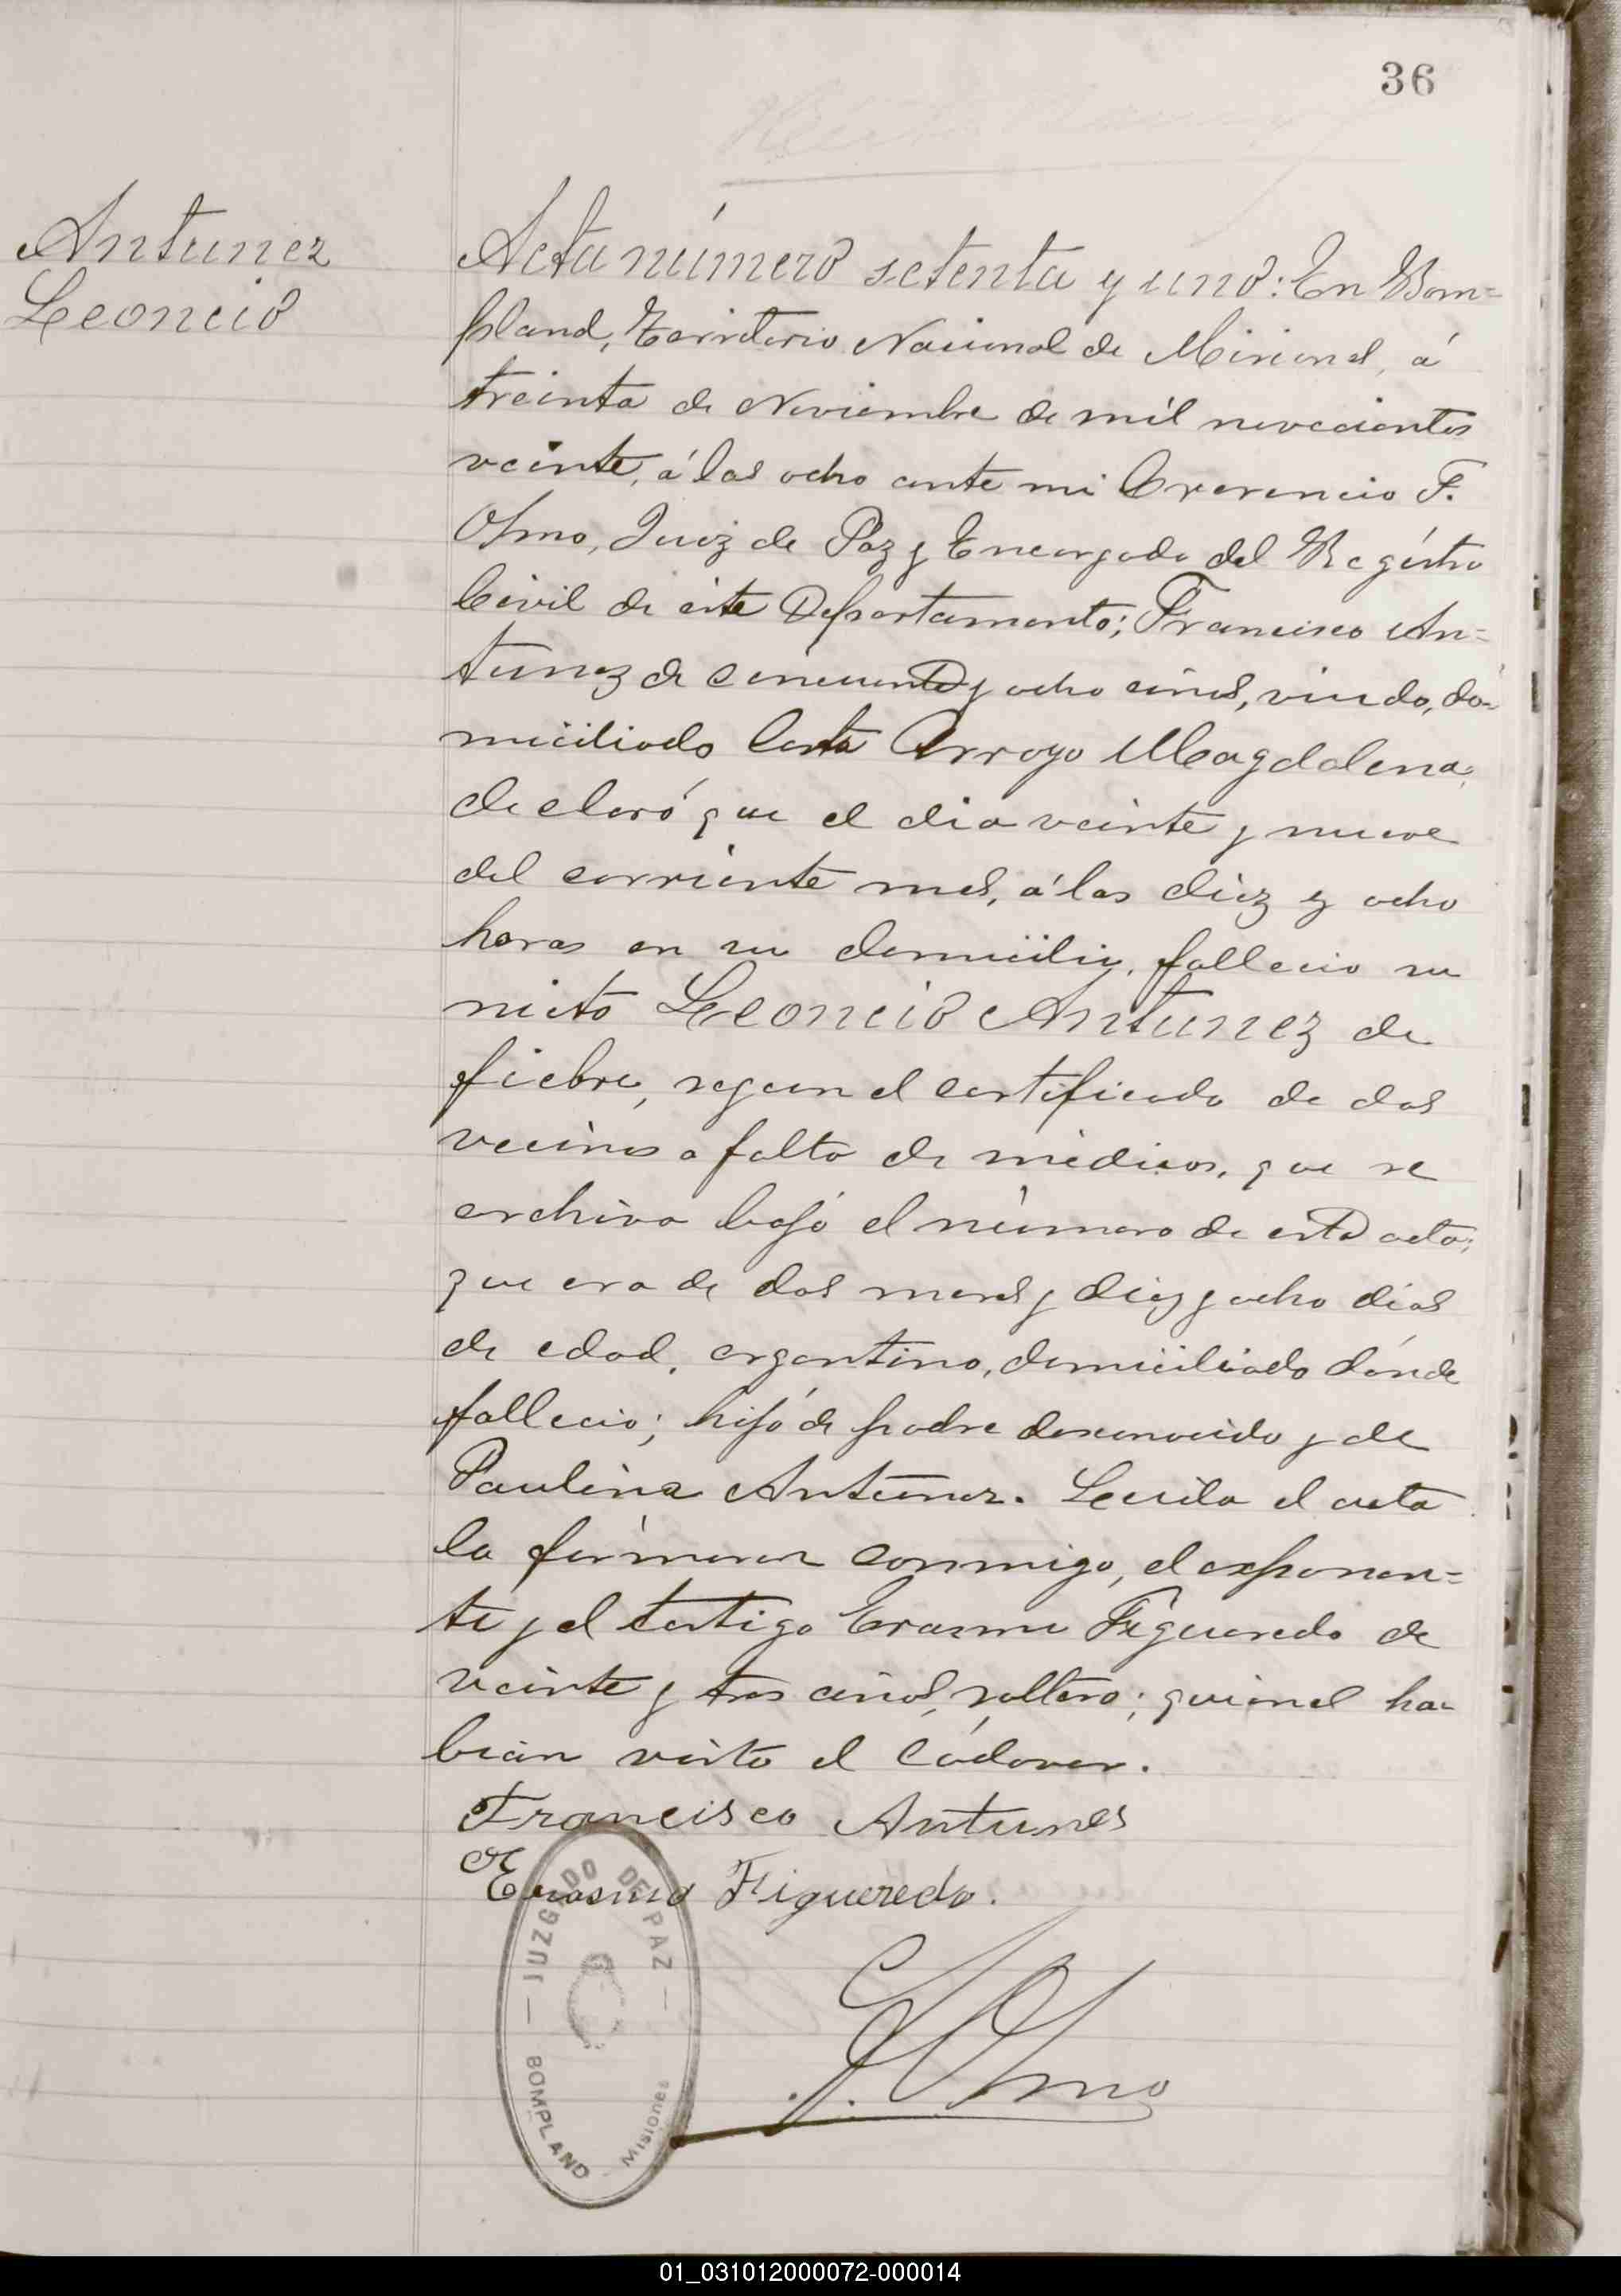 36
Antunez
Leoncio
Acta número setenta y uno: En Bom=
pland, Territorio Nacional de Misiones, á
treinta de Noviembre de mil novecientos
veinte, á las ocho ante mi F.
Olmo, Juez de Paz y Encargado del Registro
Civil de éste Departamento; Francisco An=
tunez de cincuenta y ocho años, viudo, do=
miciliado Costa Arroyo Magdalena,
declaró que el dia veinte y nueve
del corriente mes, á las diez y ocho
horas en su domicilio, fallecio su
nieto Leoncio Antunez de
fiebre, segun el certificado de dos
vecinos a falta de médicos, que se
archiva bajo el número de esta acta;
que era de dos meses y diez y ocho dias
de edad, argentino, domiciliado dónde
fallecio; hijo de padre desconocido y de
Paulina Antunez. Leida el acta
la firmaron conmigo, el exponen=
te y el testigo Erasmo Figueredo de
veinte y tres años, soltero; quienes ha=
bian visto el cádaver.
Francisco Antunes
Erasmo Figueredo.
JUZGADO DE PAZ
Olmo
BOMPLAND Misiones
01_031012000072-000014